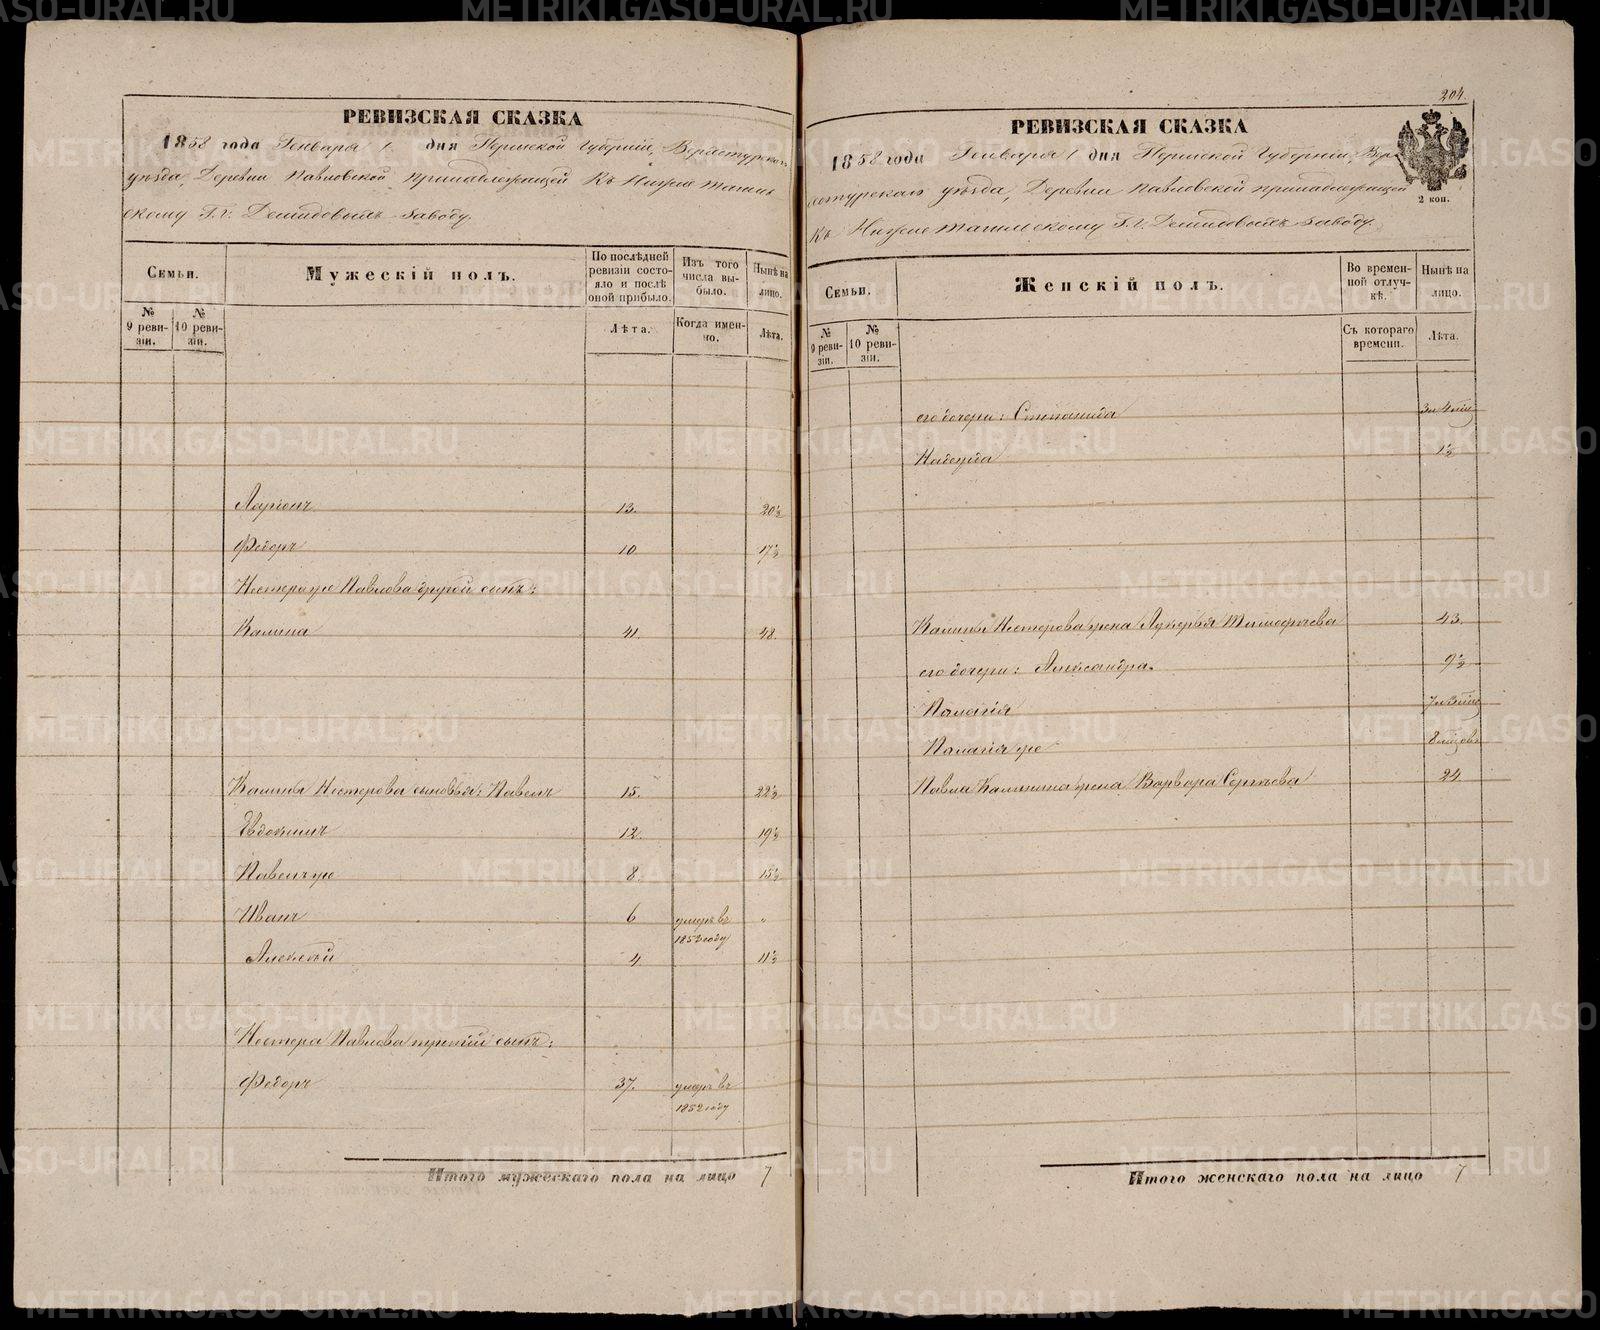 РЕВИЗСКАЯ СКАЗКА
1858 года Генваря 1 дня Пермской Губерніи, Верхотурскаго
уѣзда, Деревни Павловской принадлежащей Къ Нижне Тагиль
скому Г.г. Демидовыхъ заводу.
Семьи.
№ 9 ревизіи.
№ 10 ревизіи.
Мужескій полъ.
По послѣдней
ревизіи состо-
яло и послѣ
оной прибыло.
Лѣта.
Изъ того
числа вы-
было.
Когда имен-
но.
Нынѣ на
лицо.
Лѣта.
Ларіонъ 13. 20½
Федоръ 10 17½
Нестера же Павлова другой сынъ:
Калина 41. 48.
Калины Нестерова сыновья: Павелъ 15. 22½
Евдокимъ 12. 19½
Павелъ же 8. 15½
Иванъ 6 умеръ въ 1853 году "
Алексѣй 4 11½
Нестера Павлова третій сынъ:
Федоръ 37. умеръ въ 1852 году
Итого мужескаго пола на лицо 7
204.
РЕВИЗСКАЯ СКАЗКА
1858 года Генваря 1 дня Пермской Губерніи, Верх
отурскаго уѣзда, Деревни Павловской принадлежащей
Къ Нижне Тагильскому Г.г. Демидовыхъ заводу.
2 коп.
Семьи.
№ 9 ревизіи.
№ 10 ревизіи.
Женскій полъ.
Во времен-
ной отлуч-
кѣ.
Съ котораго
времени.
Нынѣ на
лицо.
Лѣта.
его дочери: Степанида 3 и 4 мѣс
Надежда 1½
Калины Нестерова жена Лукерья Тимофѣева 43.
его дочери: Александра. 9½
Палагія 7 и 3 мѣс
Палагія же 8 мѣсцовъ
Павла Калинина жена Варвара Сергѣева 24
Итого женскаго пола на лицо 7
METRIKI.GASO-URAL.RU